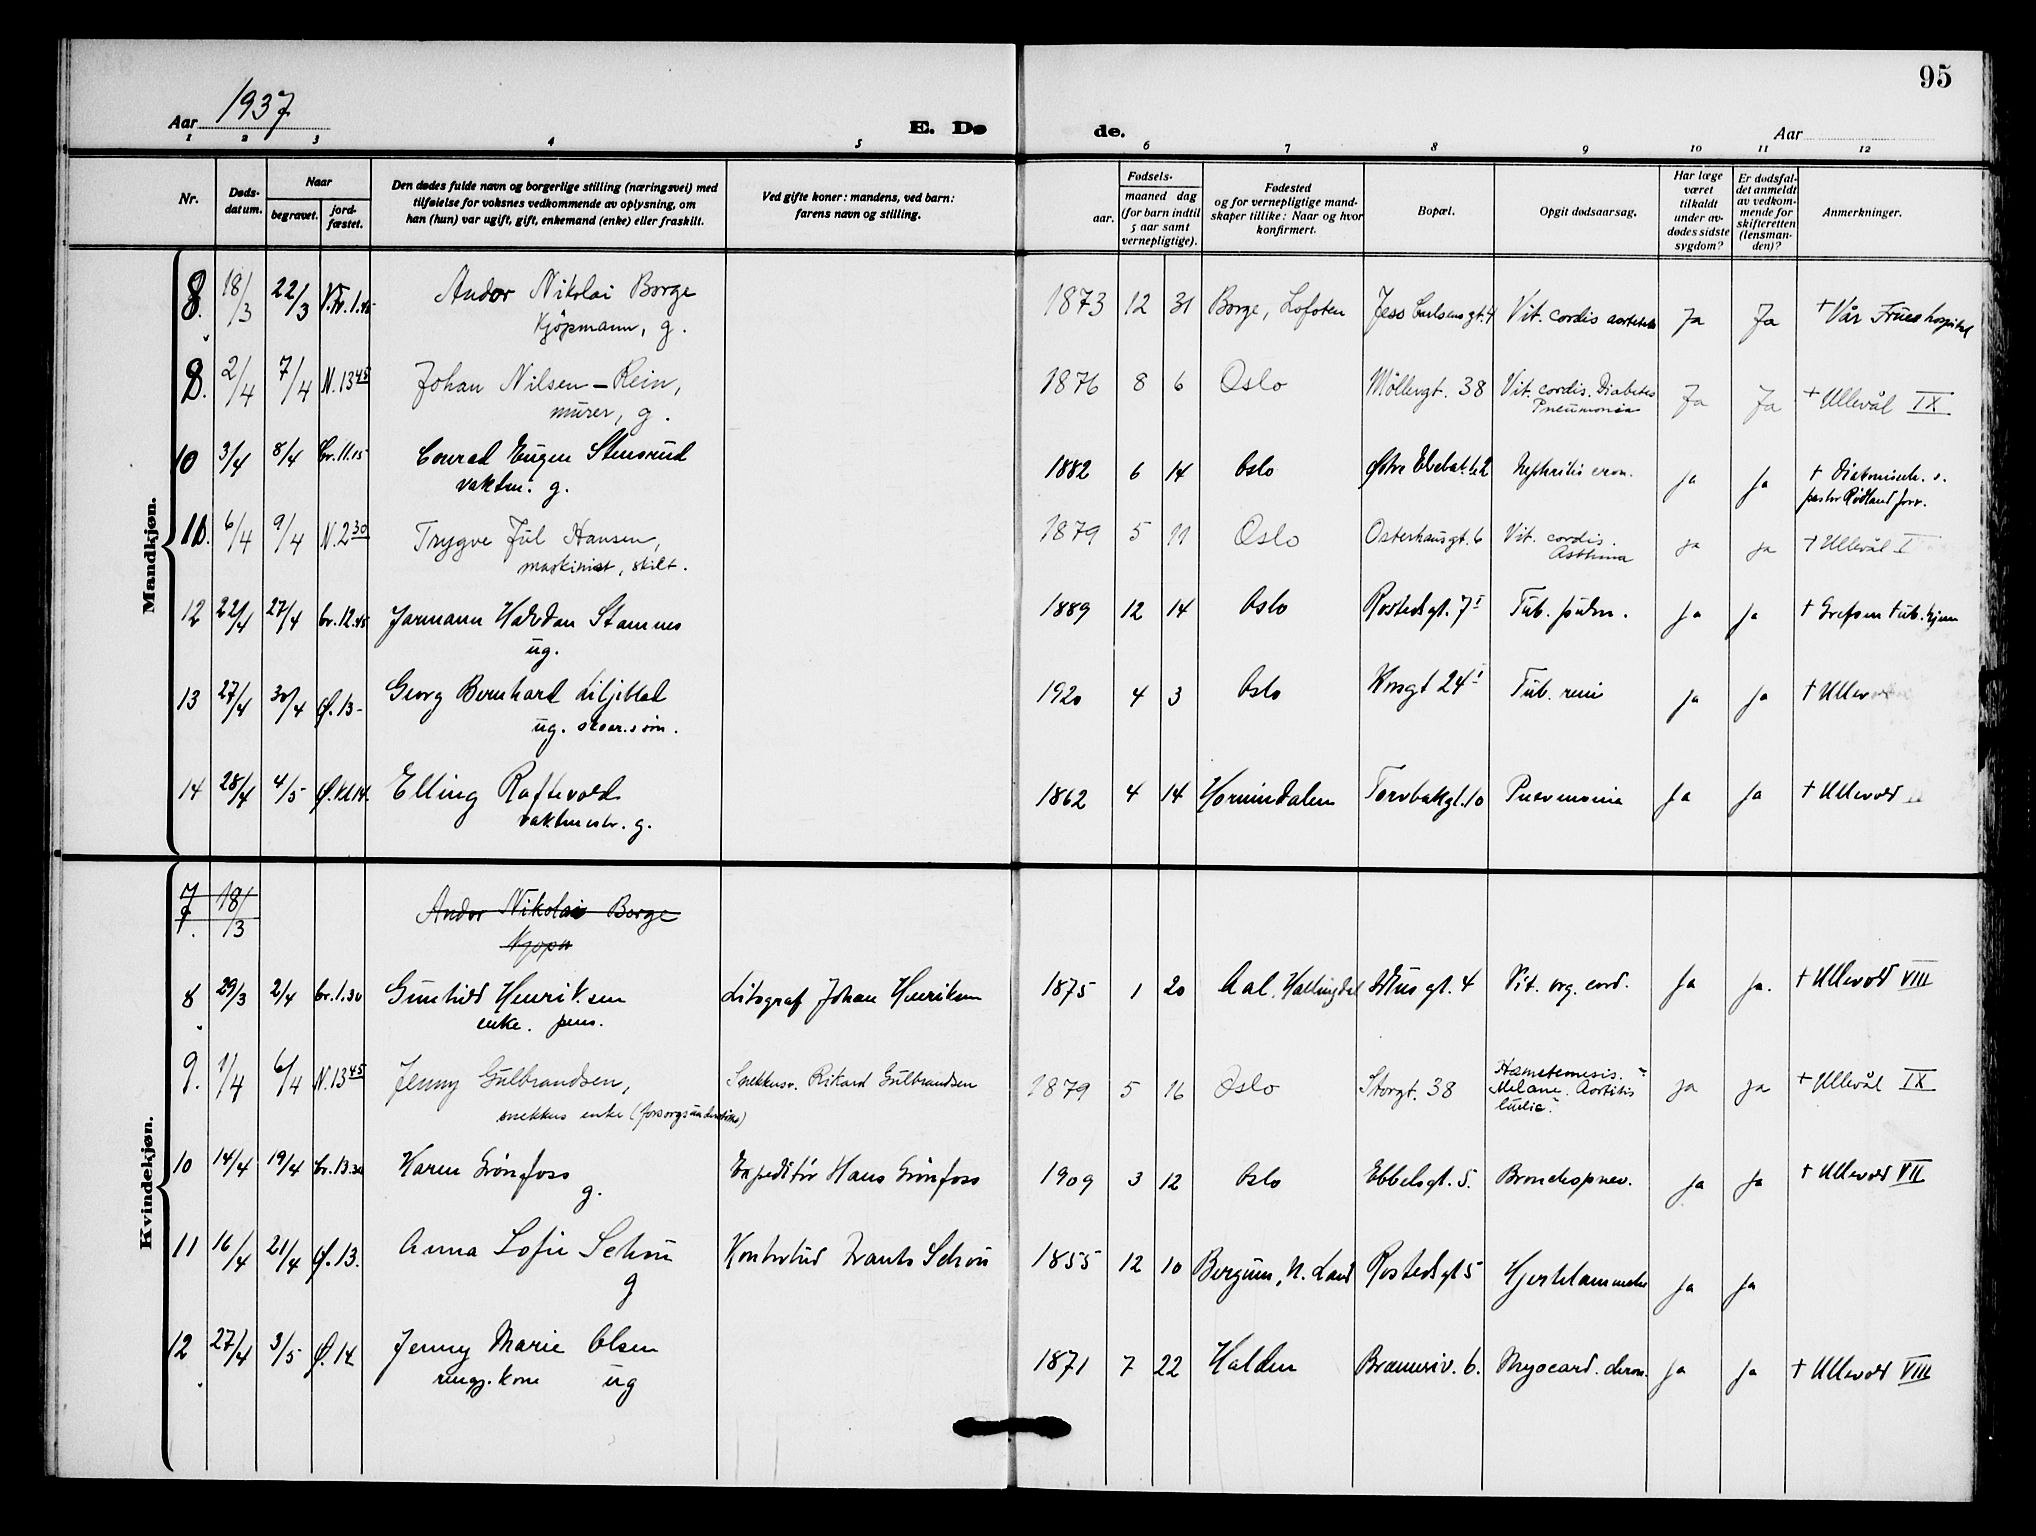 95
Aar 1937
E. Dø
de.
Aar
1 2 3 4 5 6 7 8 9 10 11 12
Nr.
Døds-datum.
Naar
begravet.
jord-fæstet.
Den dødes fulde navn og borgerlige stilling (næringsvei) med
tilføielse for voksnes vedkommende av oplysning, om
han (hun) var ugift, gift, enkemand (enke) eller fraskilt.
Ved gifte koner: mandens, ved barn:
farens navn og stilling.
Fødsels-
aar.
maaned dag
(for barn indtil
5 aar samt
vernepligtige).
Fødested
og for vernepligtige mand-
skaper tillike: Naar og hvor
konfirmert.
Bopæl.
Opgit dødsaarsag.
Har læge
været
tilkaldt
under av-
dødes sidste
sygdom?
Er dødsfal-
det anmeldt
av vedkom-
mende for
skifteretten
(lensman-
den)?
Anmerkninger.
Mandkjøn.
8. 18/3 22/3 Andor Nikolai Borge 1873 12 31 Borge, Lofoten Jess Carlsensgt. 4 Vit. cordis Ja Ja + Vår Frues hospital
Kjöpmann, g.
2/4 7/4 N. 13 45 Johan Nilsen-Rein, 1876 8 6 Oslo Möllergt. 38 Vit. cordis. Diabetes Ja Ja + Ullevål IX
murer, g. Pneumonia
10 3/4 8/4 Cr. 11.15 Conrad Eugen Stensrud 1882 6 14 Oslo Østre Elvebak. Nephritis cron. ja ja +
vaktm. g. pastor Rödland forr.
11. 6/4 9/4 N. 2 30 Trygve Jul Hansen, 1879 5 11 Oslo Osterhausgt. 6 Vit. cordis. ja ja + Ullevål I
maskinist, skilt. Asthma
12 22/4 27/4 Cr. 12.45 Jarmann Halvdan Stamnes 1889 12 14 Oslo Rostedsgt. 7 I Tub. pulm. ja ja + Grefsen tub. hjem
ug.
13 27/4 30/4 Ø. 13- Georg Bernhard Liljeblad 1920 4 3 Oslo Korsgt 24 I Tub. reni ja ja + Ullevold
ug. skoer. sön.
14 28/4 4/5 Ø. kl 14. Elling Raftevold 1862 4 14 Hornindalen Torvbakgt. 10 Pnevmonia ja ja + Ullevold
vaktmestr. g.
Kvindekjøn.
7. 18/3 Andor Nikolai Borge
Kjöpm
8 29/3 2/4 Cr. 1.30 Gunhild Henriksen Litograf Johan Henriksen 1875 1 20 Aal, Hallingdal Vit. org. cord. Ja ja. + Ullevold VIII
enke. pens.
9. 1/4 6/4 N. 13 45 Jenny Gulbrandsen, Snekkersv. Rikard Gulbrandsen 1879 5 16 Oslo Storgt. 38 Hæmatemesis. Melæne. Aortitis ja ja + Ullevål IX
snekkers enke (forsorgsunderstöttet) luetic.
10 14/4 19/4 Cr. 13.30 Karen Grönfoss Expeditör Hans Grönfoss 1909 3 12 Oslo Ebbelsgt. 5. Bronchopnev. ja ja + Ullevold VII
g.
11 16/4 21/4 Ø. 13. Anna Sofie Schou Kontorbud Frants Schou 1855 12 10 Bergum, N. Land Rostedsgt 5 Hjertelammelse ja ja
g
12 27/4 3/5 Ø. 14 Jenny Marie Olsen 1871 7 22 Halden Brenneriv. 6. Myocard. chron. ja ja + Ullevold VIII
rengj. kone ug